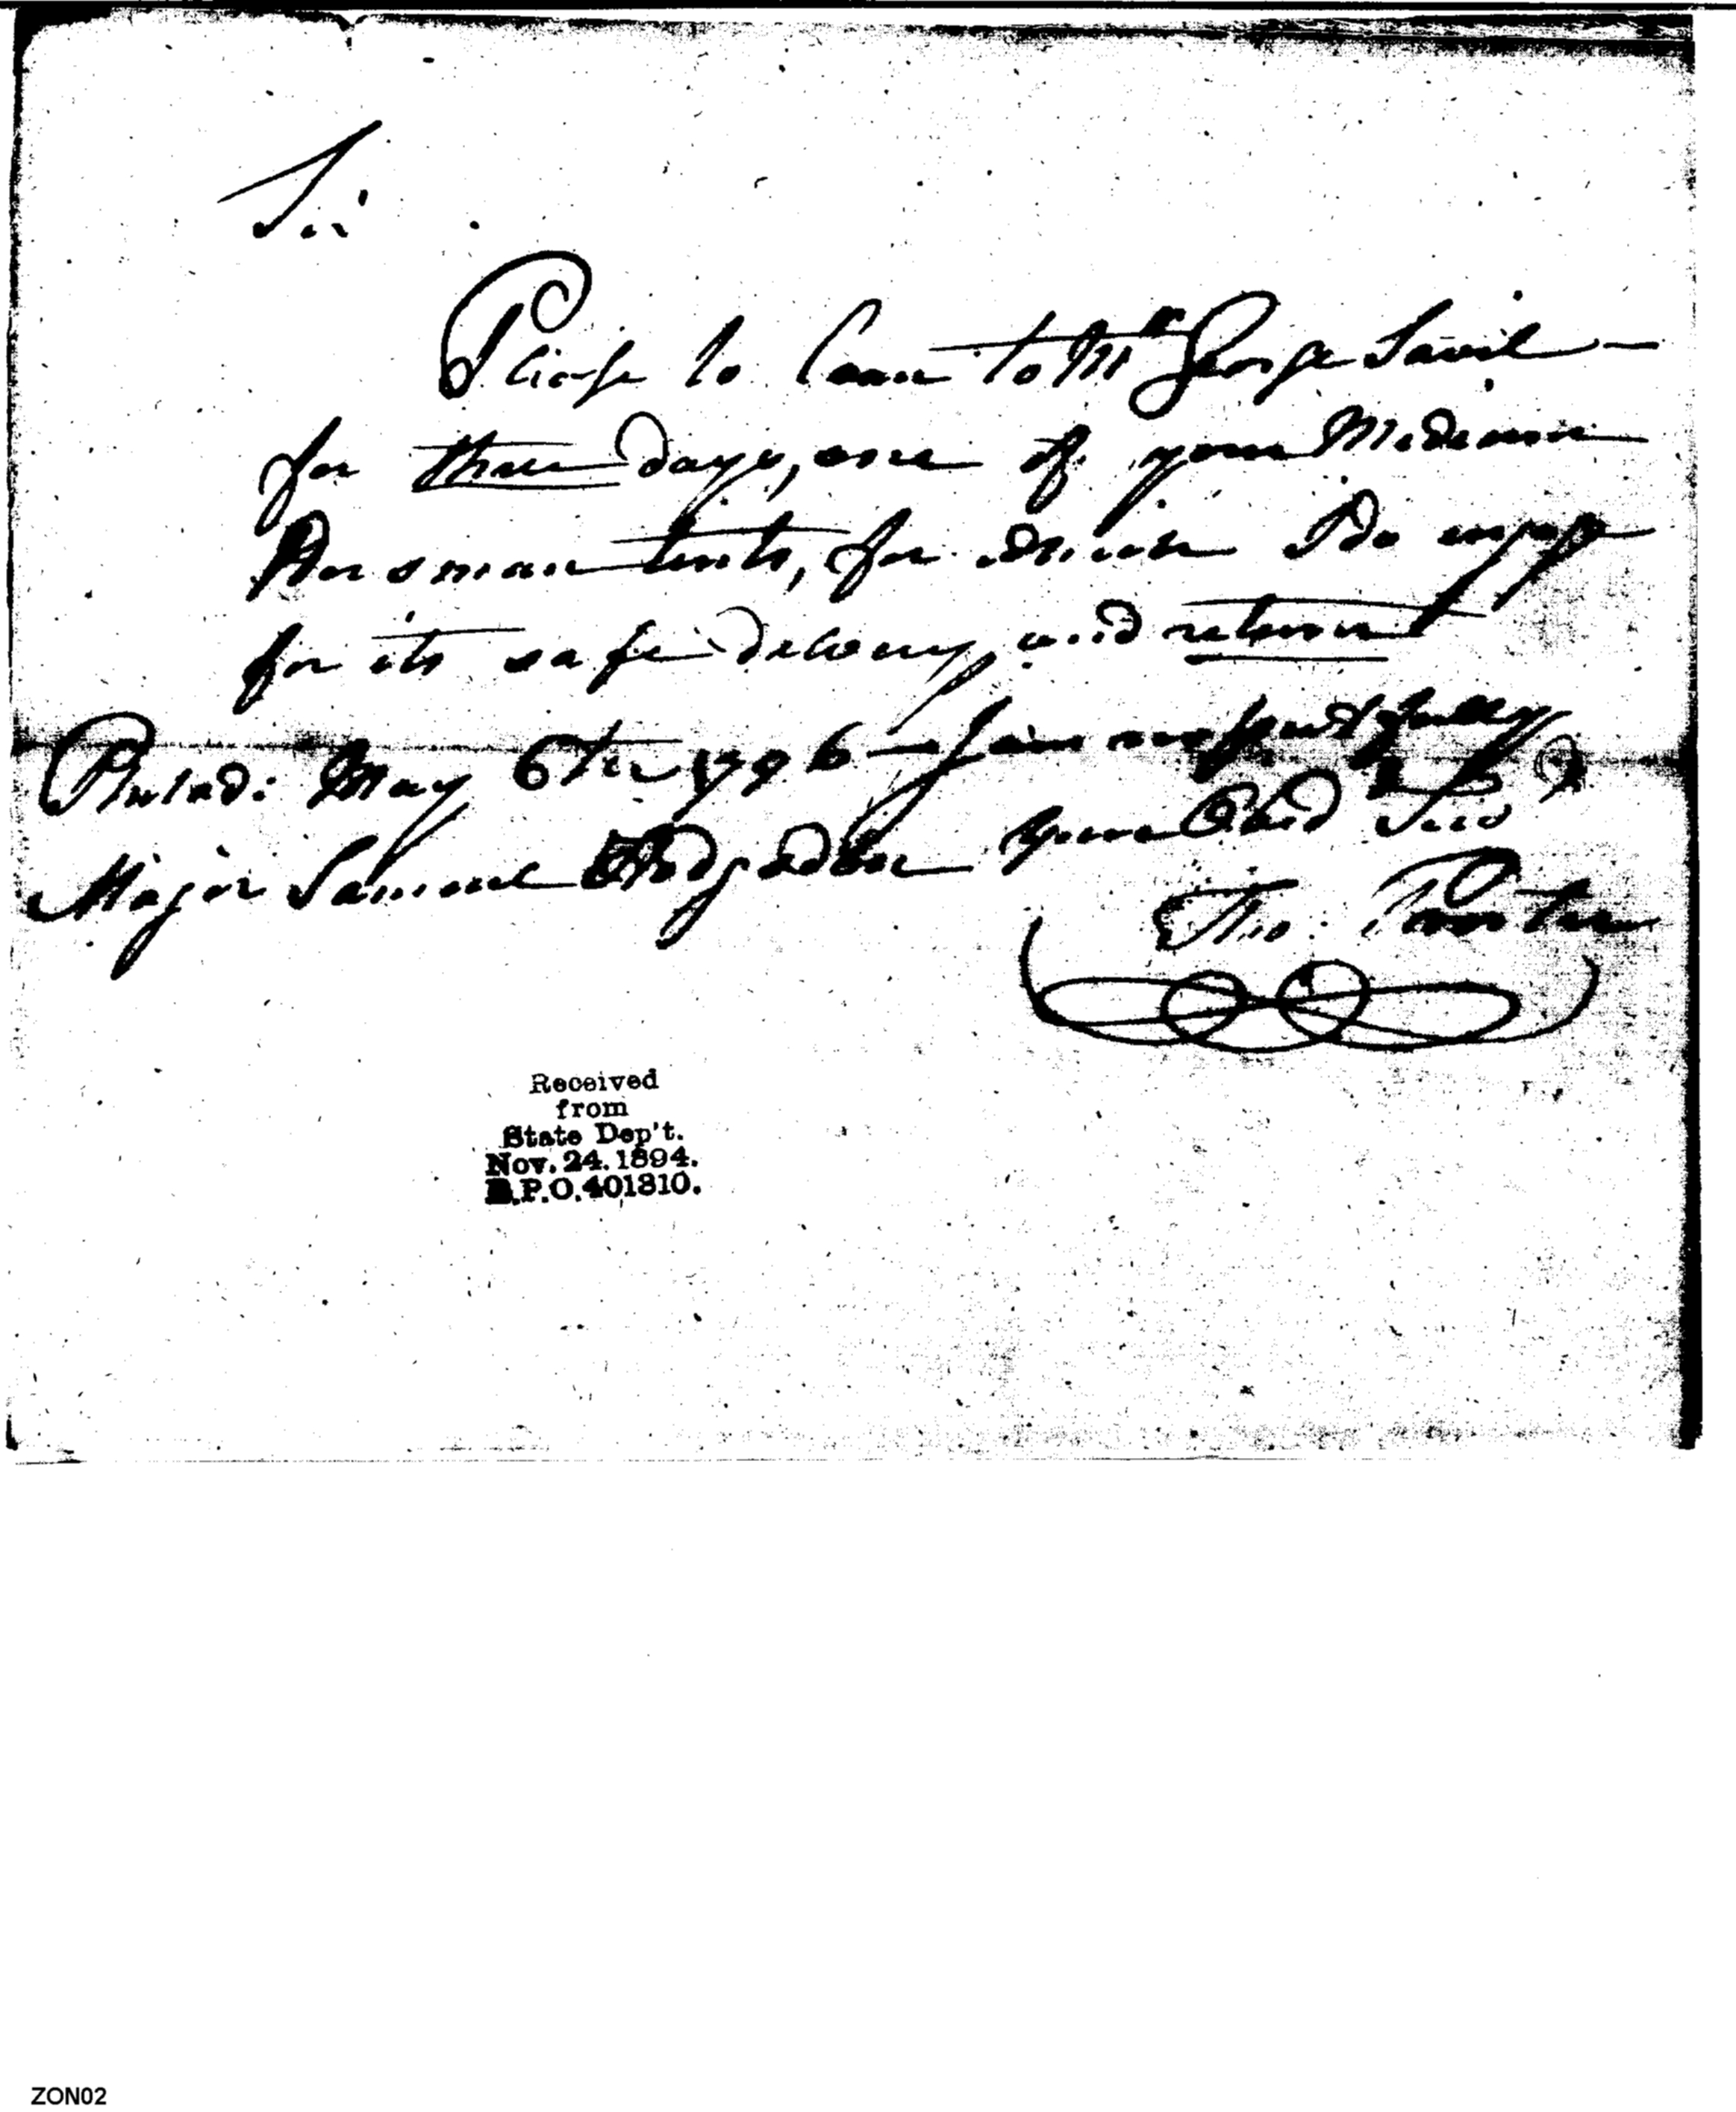 Sir
Please to loan to Mr George Savil
for three days, one of your
Horsman tents, for which I do engage
for its safe delivery, and return
Philad: May 6th 1796 - I am respectfully
Major Samuel Hodgdon your Obed Serv
Tho:
Received
from
State Dep't.
Nov. 24. 1894.
P.O. 401810.
ZON02